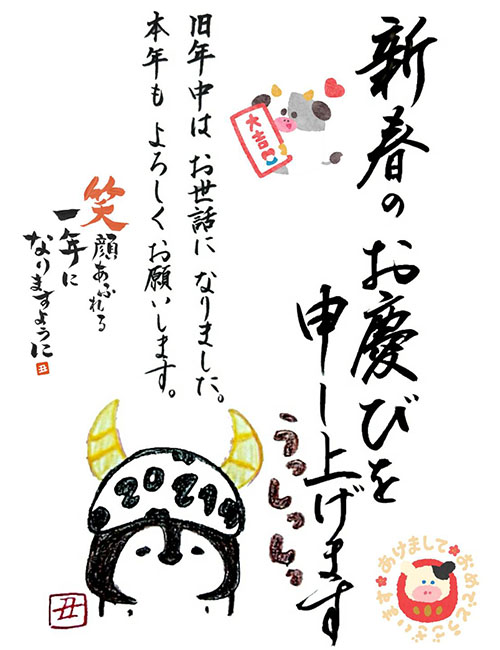 新春のお慶びを
申し上げます
大吉
旧年中は お世話に なりました。
本年も よろしく お願いします。
笑顔あふれる
一年に
なりますように
丑
うっしっしっ
2021年
丑
あけまして
おめでとうございます